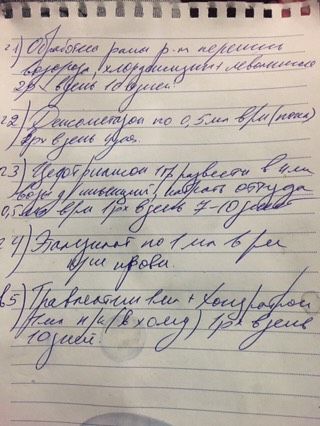 1) Обработка раны р-м перекись
водорода, хлоргексидин + левомеколь
2р в день 10 дней.
2) Дексометазон по 0,5 мл в/м (попа)
1р в день
3) Цефтриаксон 1гр развести в 4 мл
воды д/инъекций, набрать оттуда
0,5 мл в/м 1рх в день 7-10 дней
4) Этамзилат по 1 мл в/м
при крови.
5) Травматин 1мл + Хондартрон
1мл п/к (в холку) 1рх в день
10 дней.